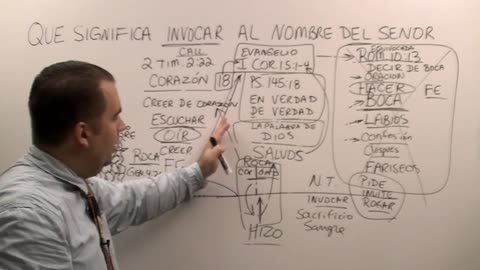 QUE SIGNIFICA INVOCAR AL NOMBRE DEL SENOR
CALL
2 TIM. 2:22
CORAZÓN 18
CREER DE CORAZÓN
ESCUCHAR
OIR
CREER
ROCA
FE
EVANGELIO
I COR. 15:1-4
PS. 145:18
EN VERDAD
DE VERDAD
LA PALABRA DE
DIOS
SALVOS
ROCA
HIZO
N.T.
INVOCAR
Sacrificio
Sangre
EQUIVOCADA
ROM 10:13
DECIR DE BOCA
ORACION
HACER FE
BOCA
LABIOS
CONFESIÓN
FARISEOS
PIDE
INVITE
ROGAR